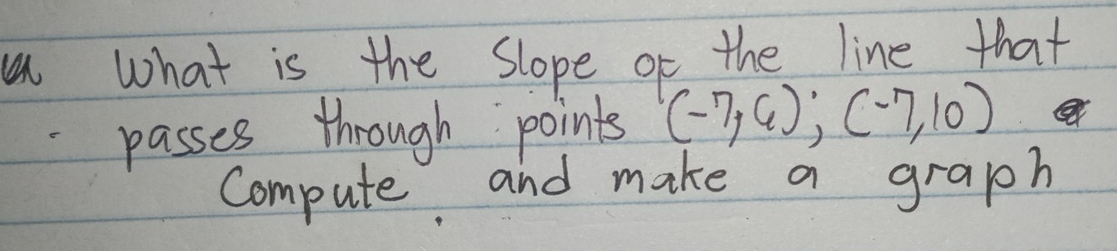 What is the Slope of the line that
passes through points (-7,6); (-7,10)
Compute. and make a graph